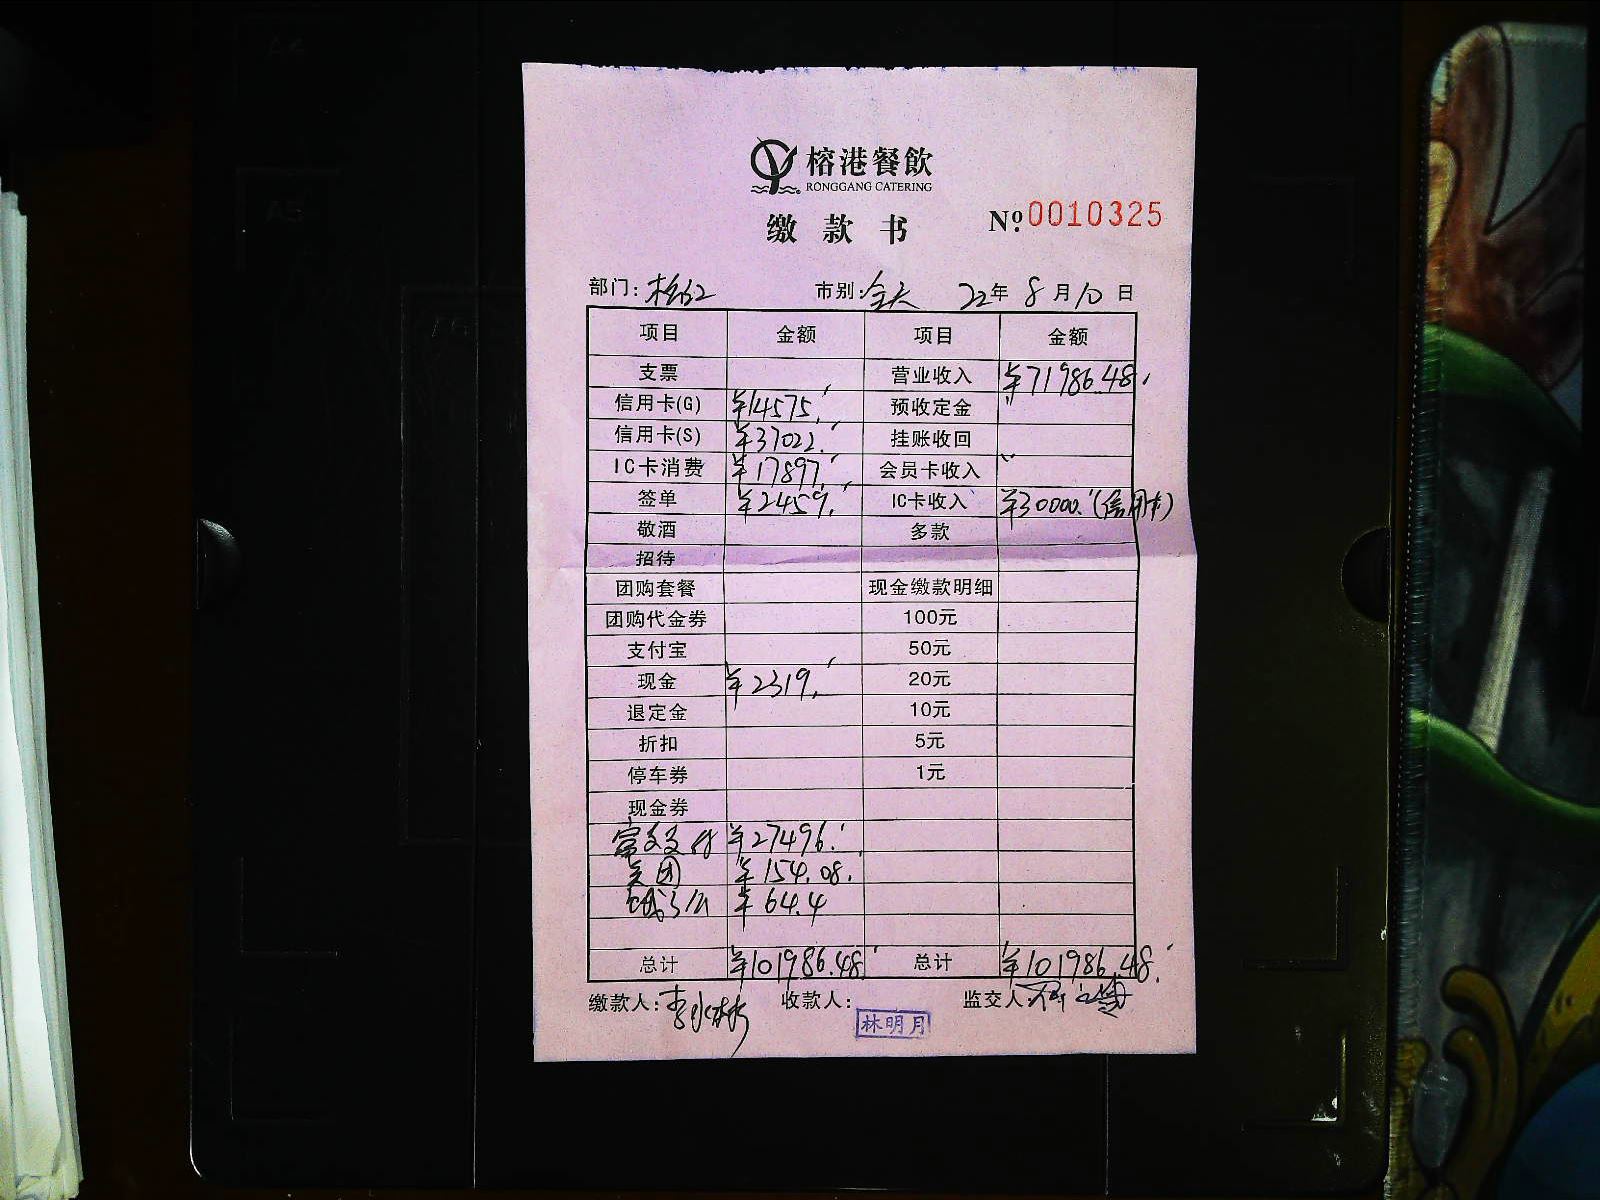 榕港餐飲
RONGGANG CATERING
缴款书 No.0010325
部门: 市别:全天 22年8月10日
项目 金额 项目 金额
支票 营业收入 ¥71986.48
信用卡(G) ¥14575. 预收定金
信用卡(S) ¥37022. 挂账收回
IC卡消费 ¥17897. 会员卡收入
签单 ¥2459. IC卡收入 ¥30000.(信用卡)
敬酒 多款
招待
团购套餐 现金缴款明细
团购代金券 100元
支付宝 50元
现金 ¥2319. 20元
退定金 10元
折扣 5元
停车券 1元
现金券
¥27496.
美团 ¥154.08.
饿了么 ¥64.4
总计 ¥101986.48 总计 ¥101986.48.
缴款人: 收款人: 监交人:
林明月
A4
A5